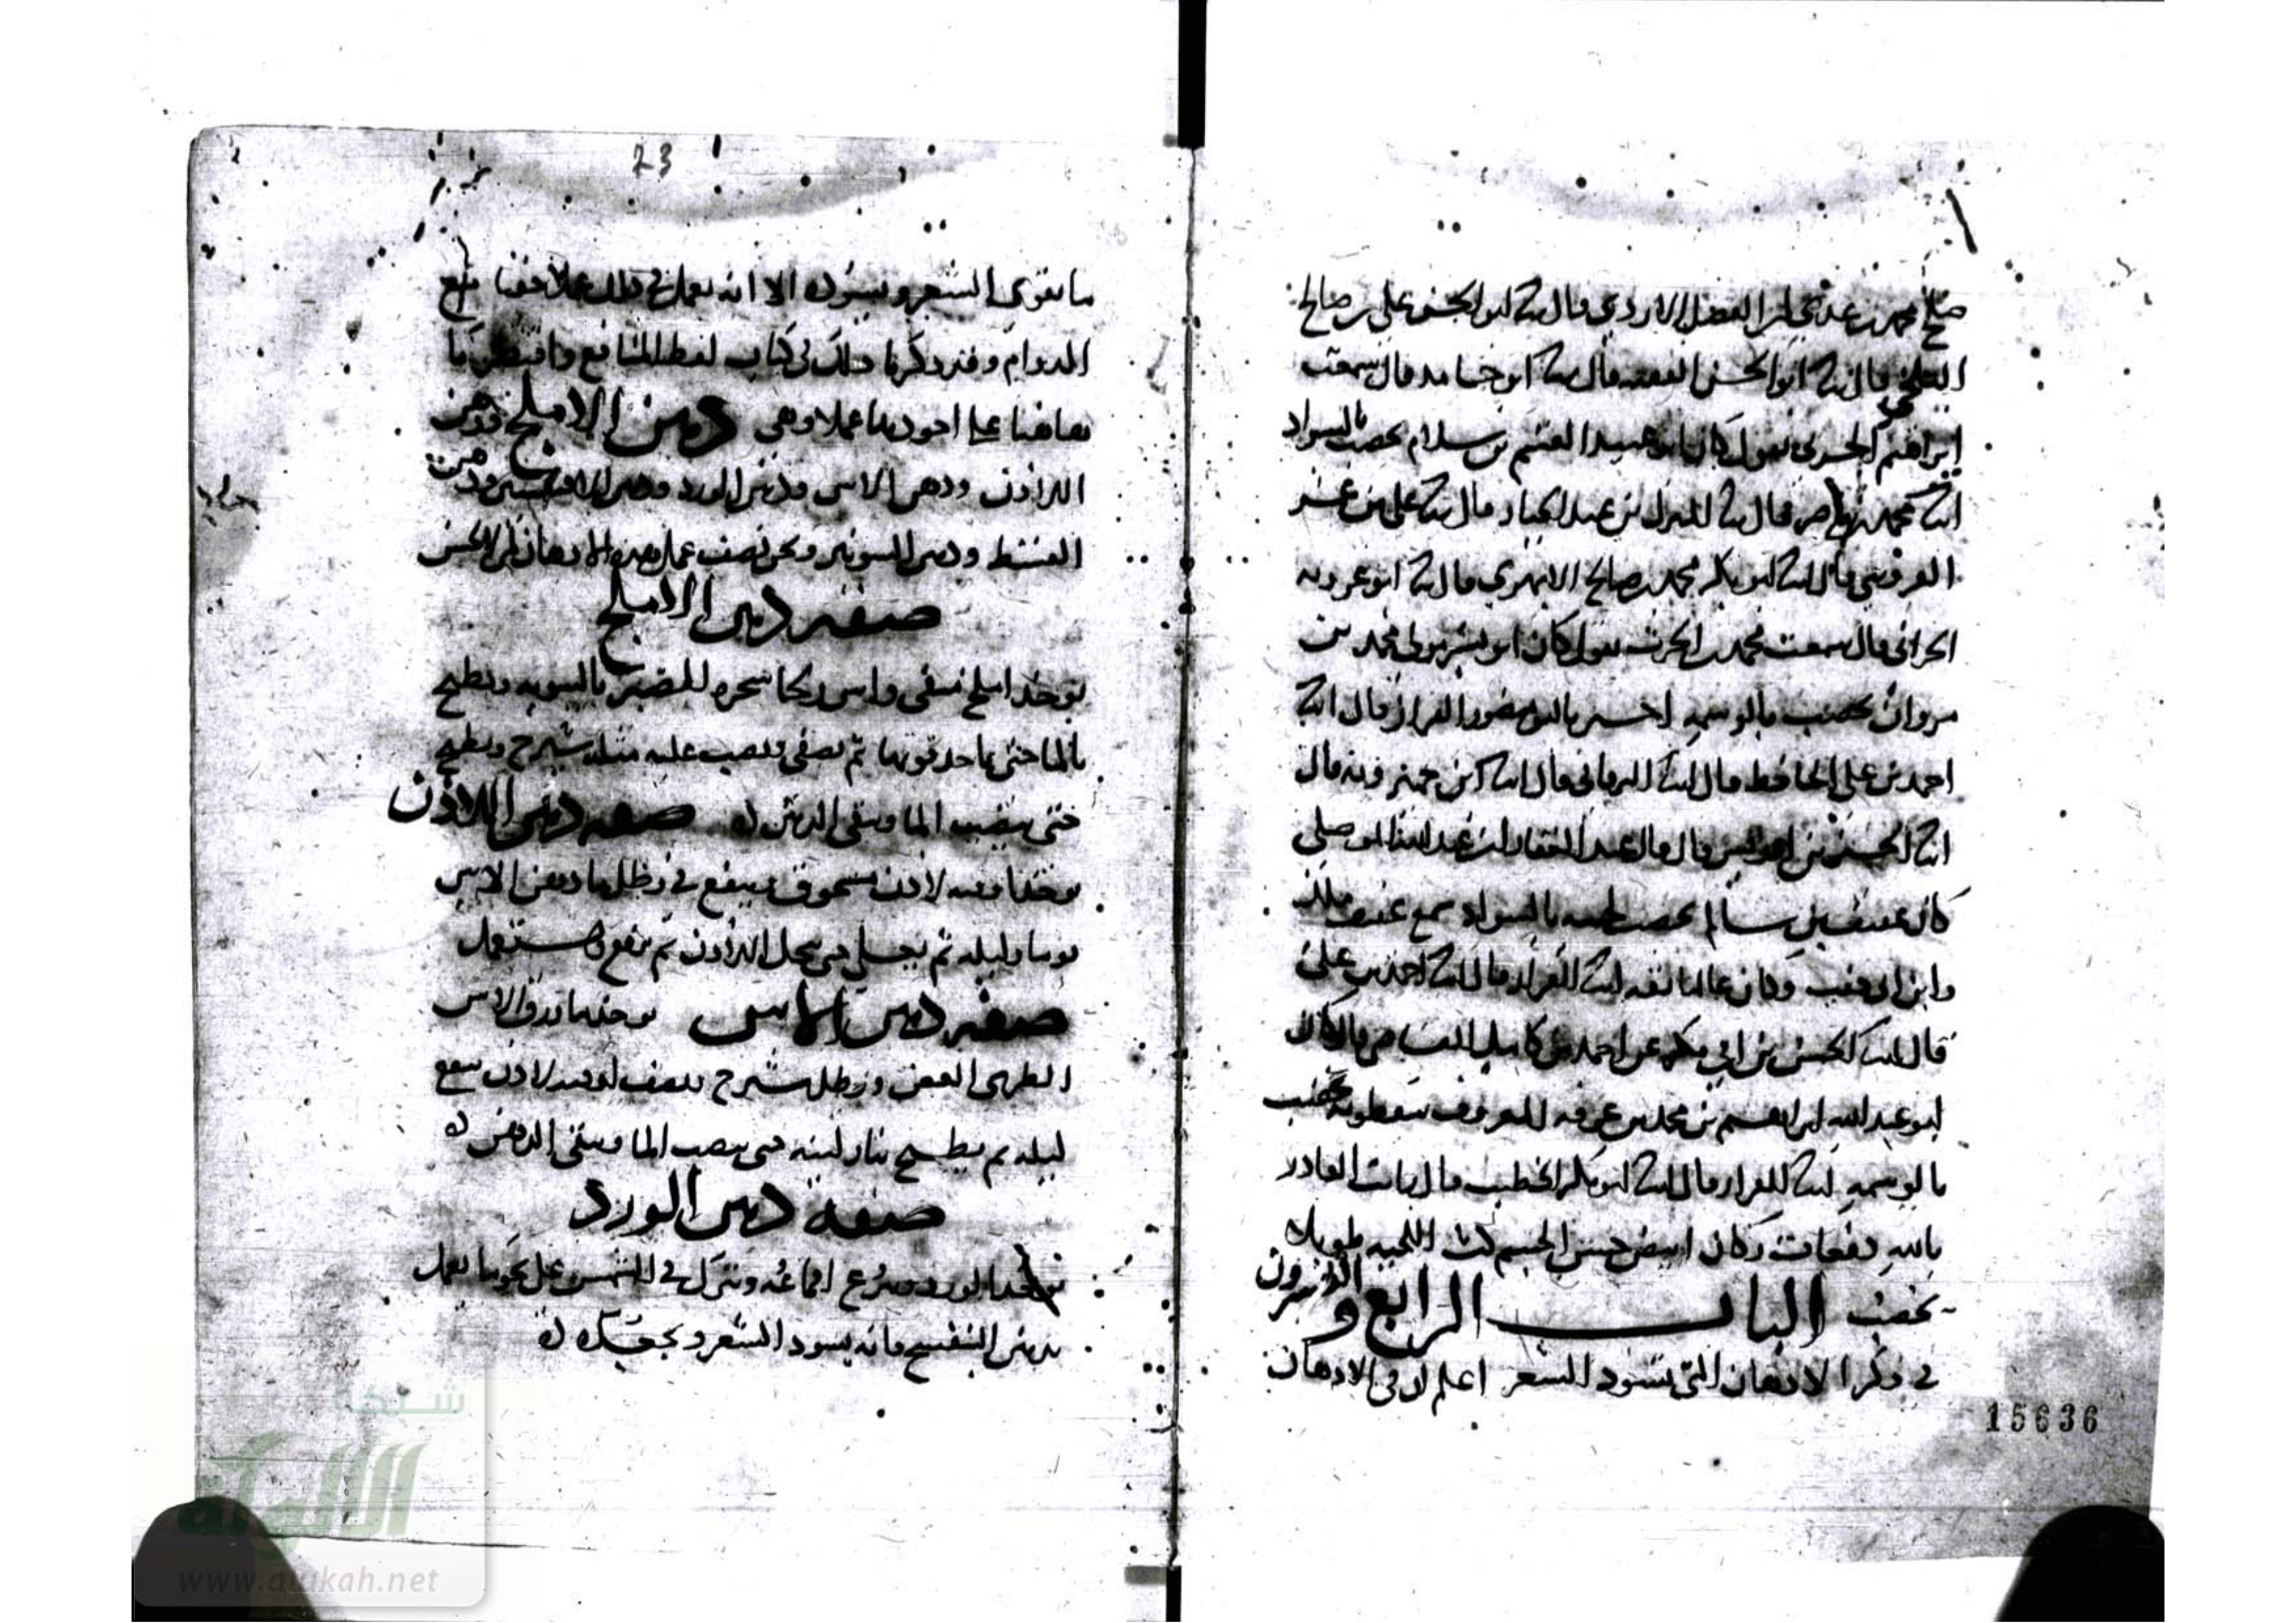 محمد بن عدي ابن الفضل الازدي قال انا ابو الحسن علي بن صالح
قال انا ابو الحسن قال انا ابو حامد قال سمعت
ابراهيم الحربي يقول كان ابو عبيد القسم بن سلام يخضب بالسواد
انا محمد بن ناصر قال انا المبارك بن عبد الجبار قال انا علي بن عمر
القزويني قال انا ابو بكر محمد بن صالح الابهري قال انا ابو عروبه
الحراني قال سمعت محمد بن الحرث يقول كان ابو بشر مولى محمد بن
مروان يخضب بالوسمه اخبرنا ابو منصور القزاز قال انا
احمد بن علي الحافظ قال انا البرقاني قال انا ابن خميرويه قال
انا الحسين بن ادريس قال قال عبد الغفار بن عبد الله الموصلي
كان عفيف بن سالم يخضب لحيته بالسواد سمع عفيف
وابن ابي ذئب وكان عالما ثقه انا القزاز قال انا احمد بن علي
قال انا الحسن بن ابي بكر عن احمد بن كامل القاضي قال كان
ابو عبد الله ابراهيم بن محمد بن عرفه المعروف بنفطويه يخضب
بالوسمه انا القزاز قال انا ابو بكر الخطيب قال رايت القادر
بالله دفعات وكان ابيض حسن الجسم كث اللحيه طويلها
يخضب الباب الرابع والعشرون
في ذكر الادهان التي تسود الشعر اعلم ان في الادهان
15636
23
ما يقوي الشعر ويسوده الا انه يعمل في ذلك عملا خفيا مع
الدوام وقد ذكرنا ذلك في كتاب لقط المنافع واقتصرنا
هاهنا على اجودها عملا وهي دهن الاملج ودهن
اللاذن ودهن الاس ودهن الورد ودهن ودهن
القسط ودهن الشونيز ونحن نصف عمل هذه الادهان
صفه دهن الاملج
يوخذ املج منقى واس بالسويه ويطبخ
بالما حتى ياخذ قوتها ثم يصفى ويصب عليه مثله شيرج ويطبخ
حتى ينضب الما ويبقى الدهن صفه دهن اللاذن
يوخذ اوقيه لاذن مسحوق فينقع في رطل ما دهن الاس
يوما وليله ثم يغلى حتى ينحل اللاذن ثم يرفع ويستعمل
صفه دهن الاس يوخذ ما ورق الاس
الطري الغض ورطل شيرج ونصف اوقيه لاذن ينقع
ليله ثم يطبخ بنار لينه حتى ينضب الما ويبقى الدهن
صفه دهن الورد
يوخذ الورد وينزع اقماعه ويترك في الشمس على نحو ما يعمل
بدهن البنفسج فانه يسود الشعر ويجعده
شبكة
الألوكة
alukah
www.alukah.net